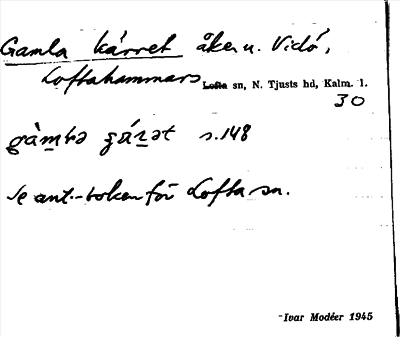 Gamla kärret åker u. Vidö,
Loftahammars Lofta sn, N. Tjusts hd, Kalm. l.
30
s. 148
se ant.-boken för Lofta sn.
Ivar Modéer 1945